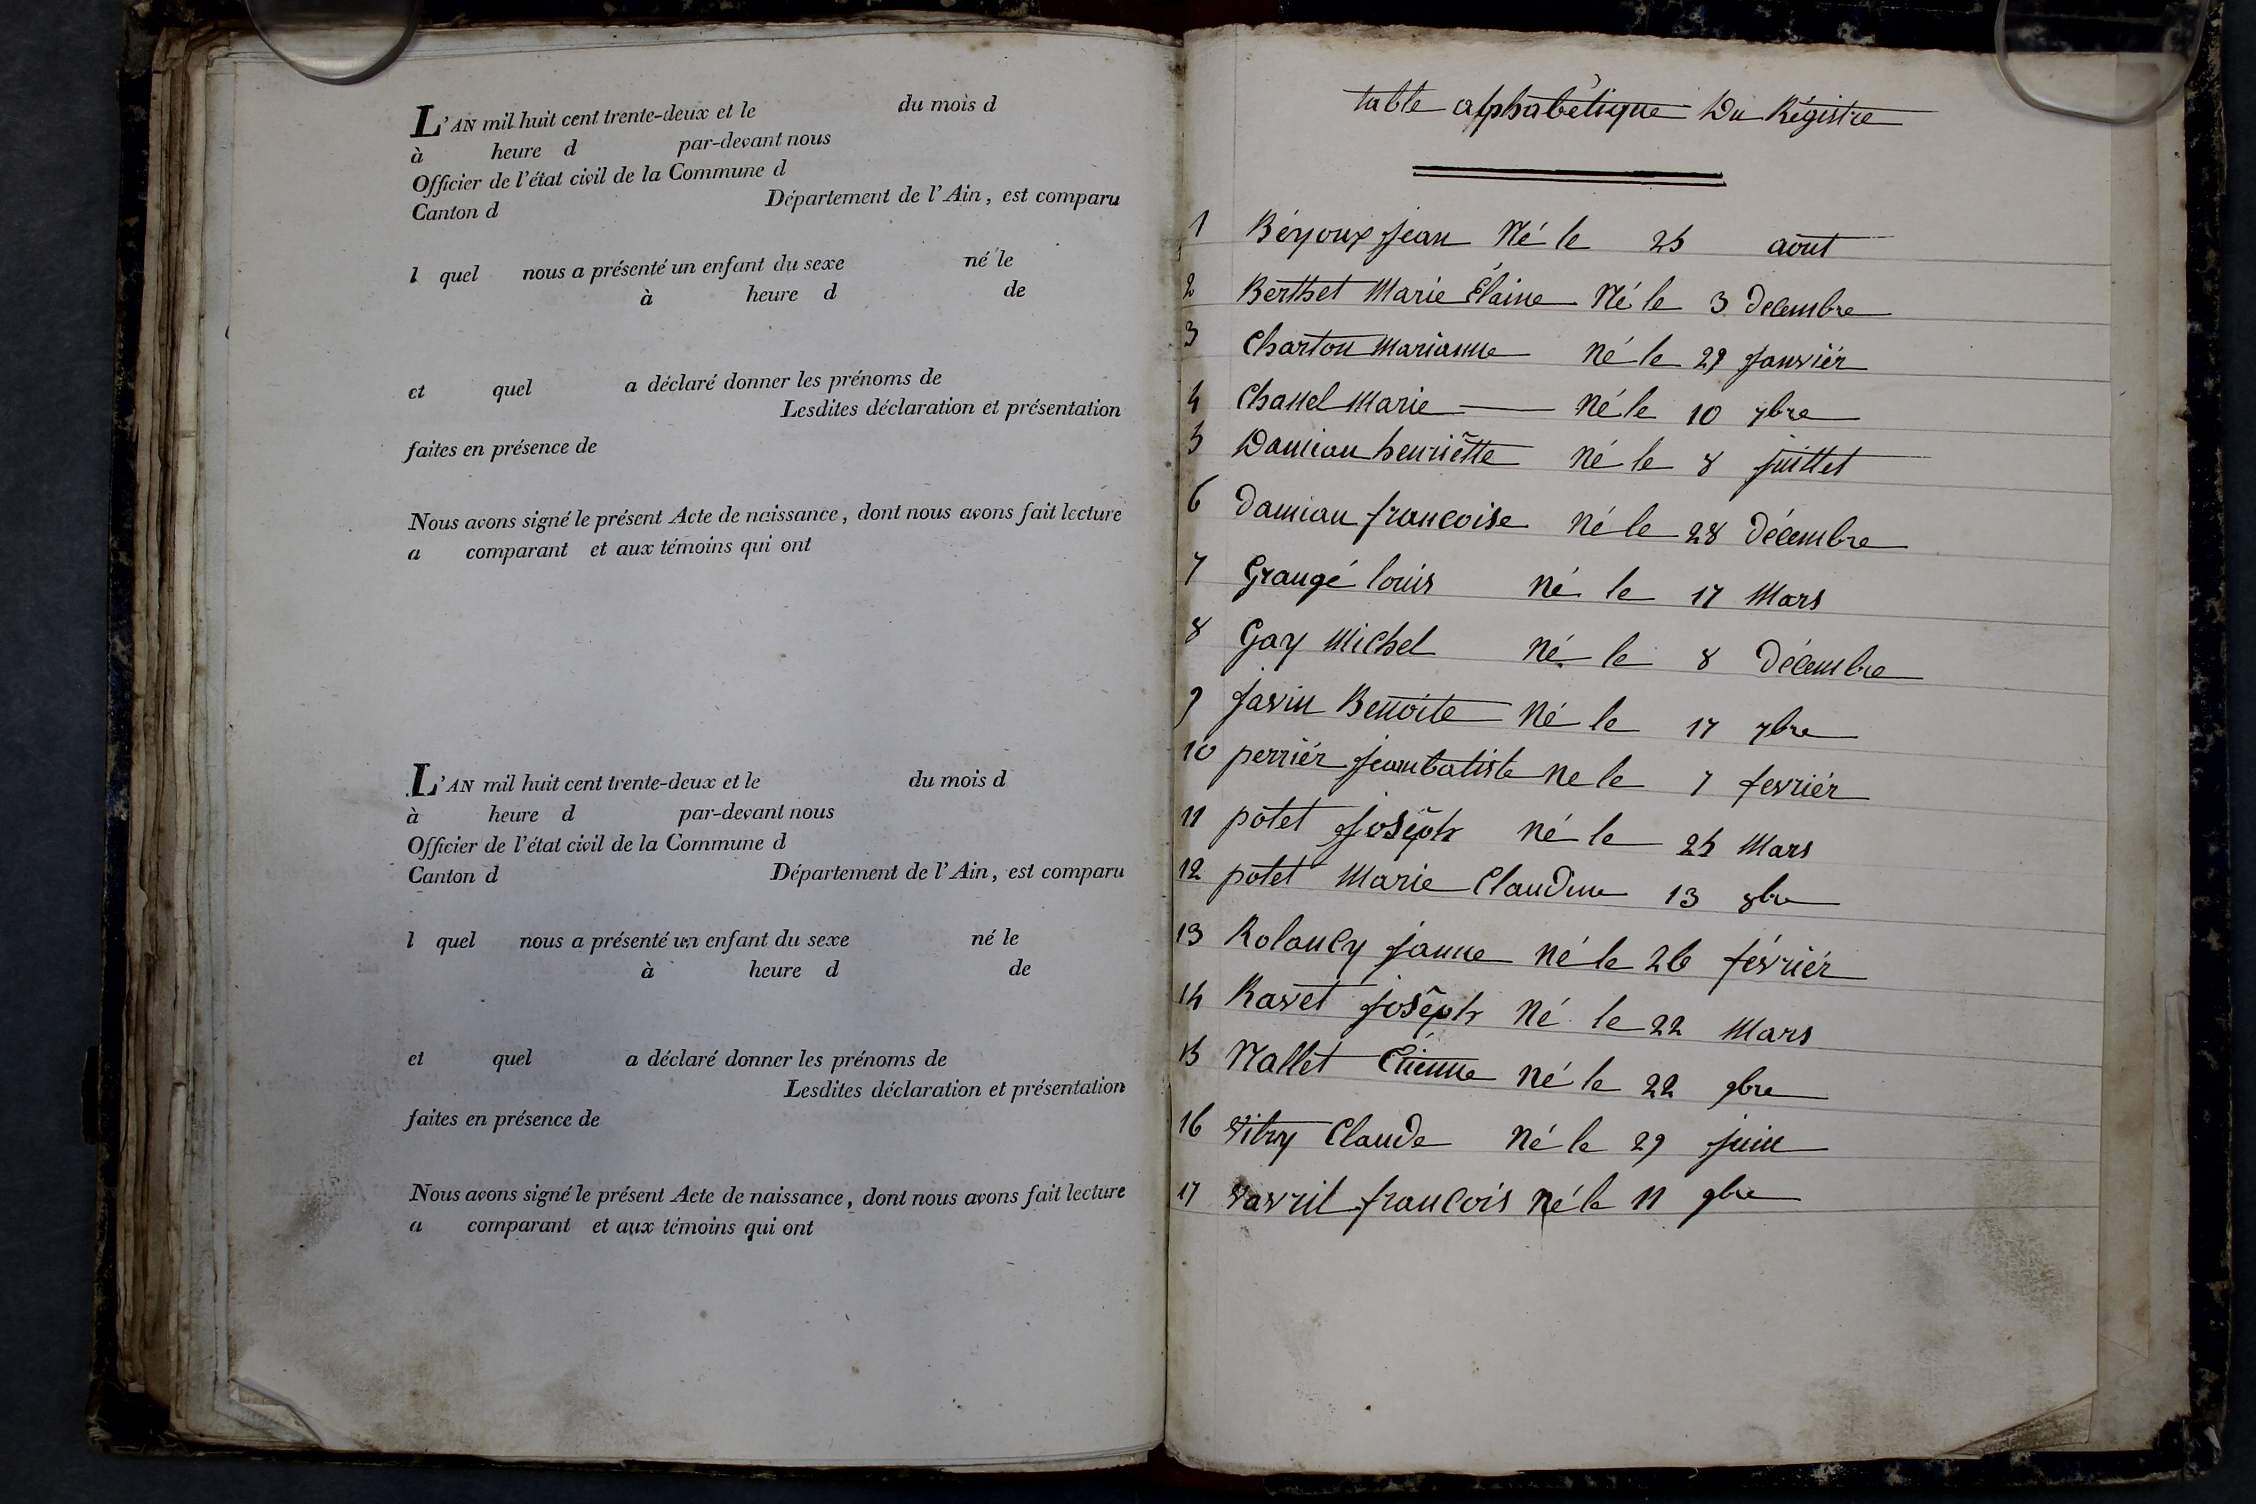 L'AN mil huit cent trente-deux et le du mois d
à heure d par-devant nous
Officier de l'état civil de la Commune d
Canton d Département de l'Ain, est comparu
l quel nous a présenté un enfant du sexe né le
à heure d de
et quel a déclaré donner les prénoms de
Lesdites déclaration et présentation
faites en présence de
Nous avons signé le présent Acte de naissance, dont nous avons fait lecture
a comparant et aux témoins qui ont
L'AN mil huit cent trente-deux et le du mois d
à heure d par-devant nous
Officier de l'état civil de la Commune d
Canton d Département de l'Ain, est comparu
l quel nous a présenté un enfant du sexe né le
à heure d de
et quel a déclaré donner les prénoms de
Lesdites déclaration et présentation
faites en présence de
Nous avons signé le présent Acte de naissance, dont nous avons fait lecture
a comparant et aux témoins qui ont
table alphabétique Du Régistre
1 Béyoux jean Né le 25 aout
2 Berthet Marie Élaine Né le 3 decembre
3 Charton Marianne né le 29 janviér
4 Chanel Marie né le 10 7bre
5 Damian henriette né le 8 juillet
6 Damian francoise né le 28 décembre
7 Grangé louis né le 17 Mars
8 Gay Michel né le 8 décembre
9 javin Benoite né le 17 7bre
10 perriér jeanbatiste ne le 7 fevriér
11 potet joseph né le 25 Mars
12 potet Marie Claudine 13 8bre
13 Rolancy janne né le 26 févriér
14 Ravet joseph né le 22 Mars
15 Nallet Etienne né le 22 9bre
16 vitry Claude né le 29 juin
17 vavril francois né le 11 9bre